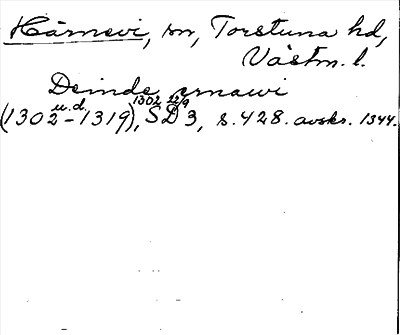 Härnevi, sn, Torstuna hd,
Västm. l.
Deinde ærnawi
u.d. 1302 22/9
(1302-1319), SD 3, s. 428. avskr. 1344.